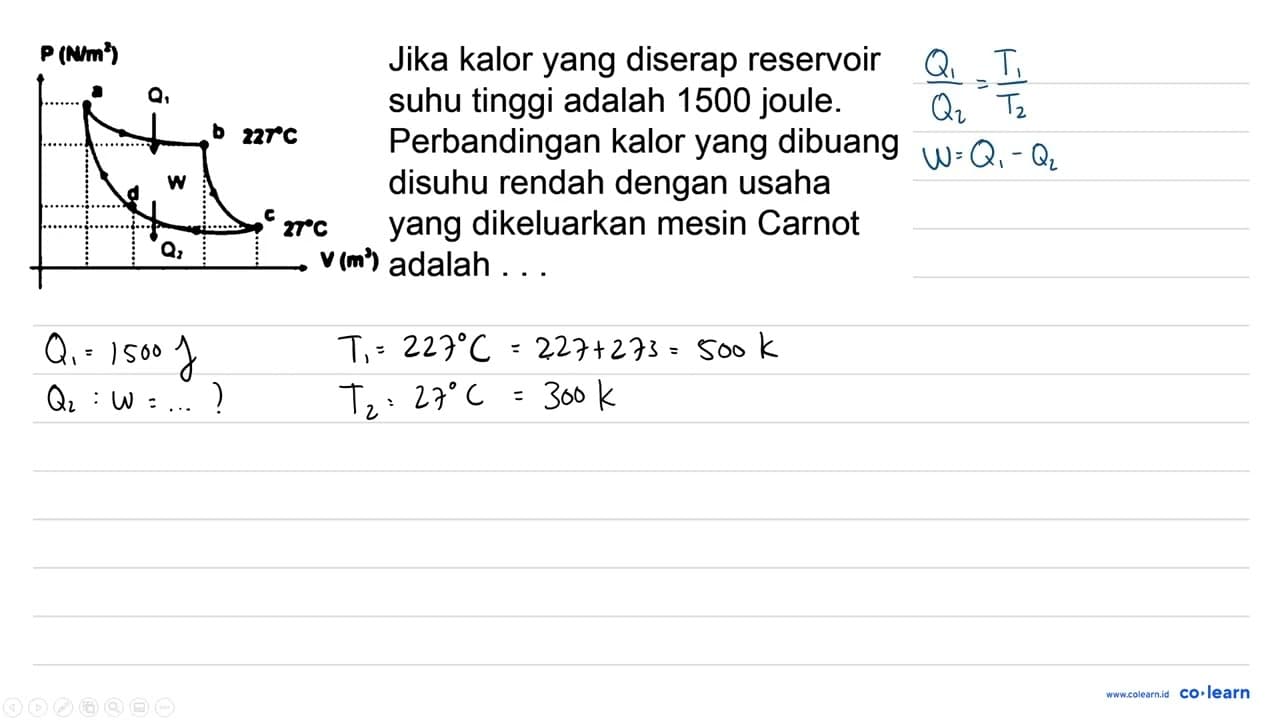 P (N/m²)
a
Q₁
b 227°C
W
d
c 27°C
Q₂
V (m³)
Jika kalor yang diserap reservoir
suhu tinggi adalah 1500 joule.
Perbandingan kalor yang dibuang
disuhu rendah dengan usaha
yang dikeluarkan mesin Carnot
adalah . . .
Q₁/Q₂ = T₁/T₂
W = Q₁ - Q₂
Q₁ = 1500 J
T₁ = 227°C = 227+273 = 500 K
Q₂ : W = ... ?
T₂ : 27°C = 300 K
www.colearn.id co·learn